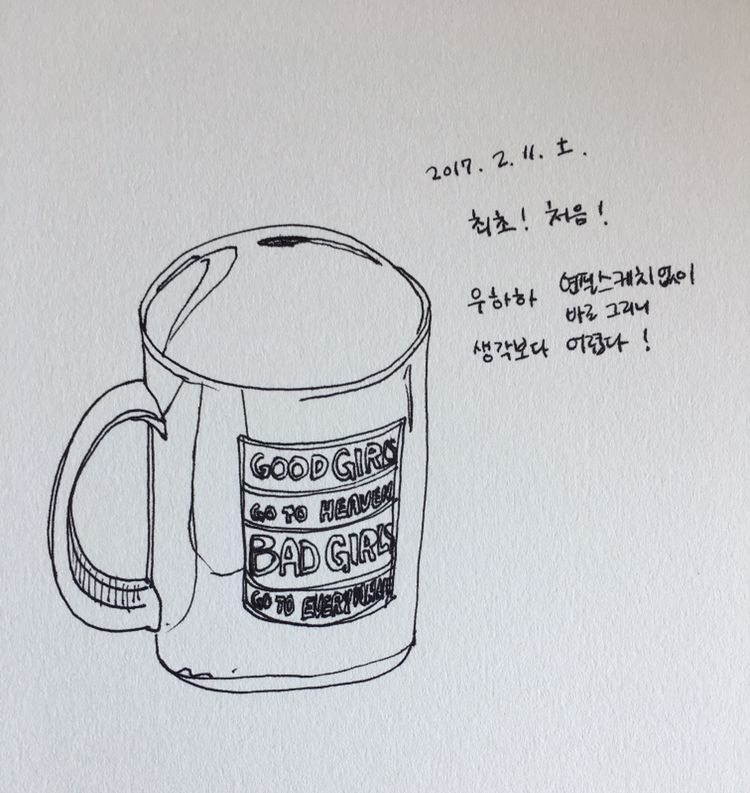 2017. 2. 11. 土.
최초! 처음!
우하하 연필스케치없이
바로 그리니
생각보다 어렵다!
GOOD GIRLS
GO TO HEAVEN
BAD GIRLS
GO TO EVERYWHERE